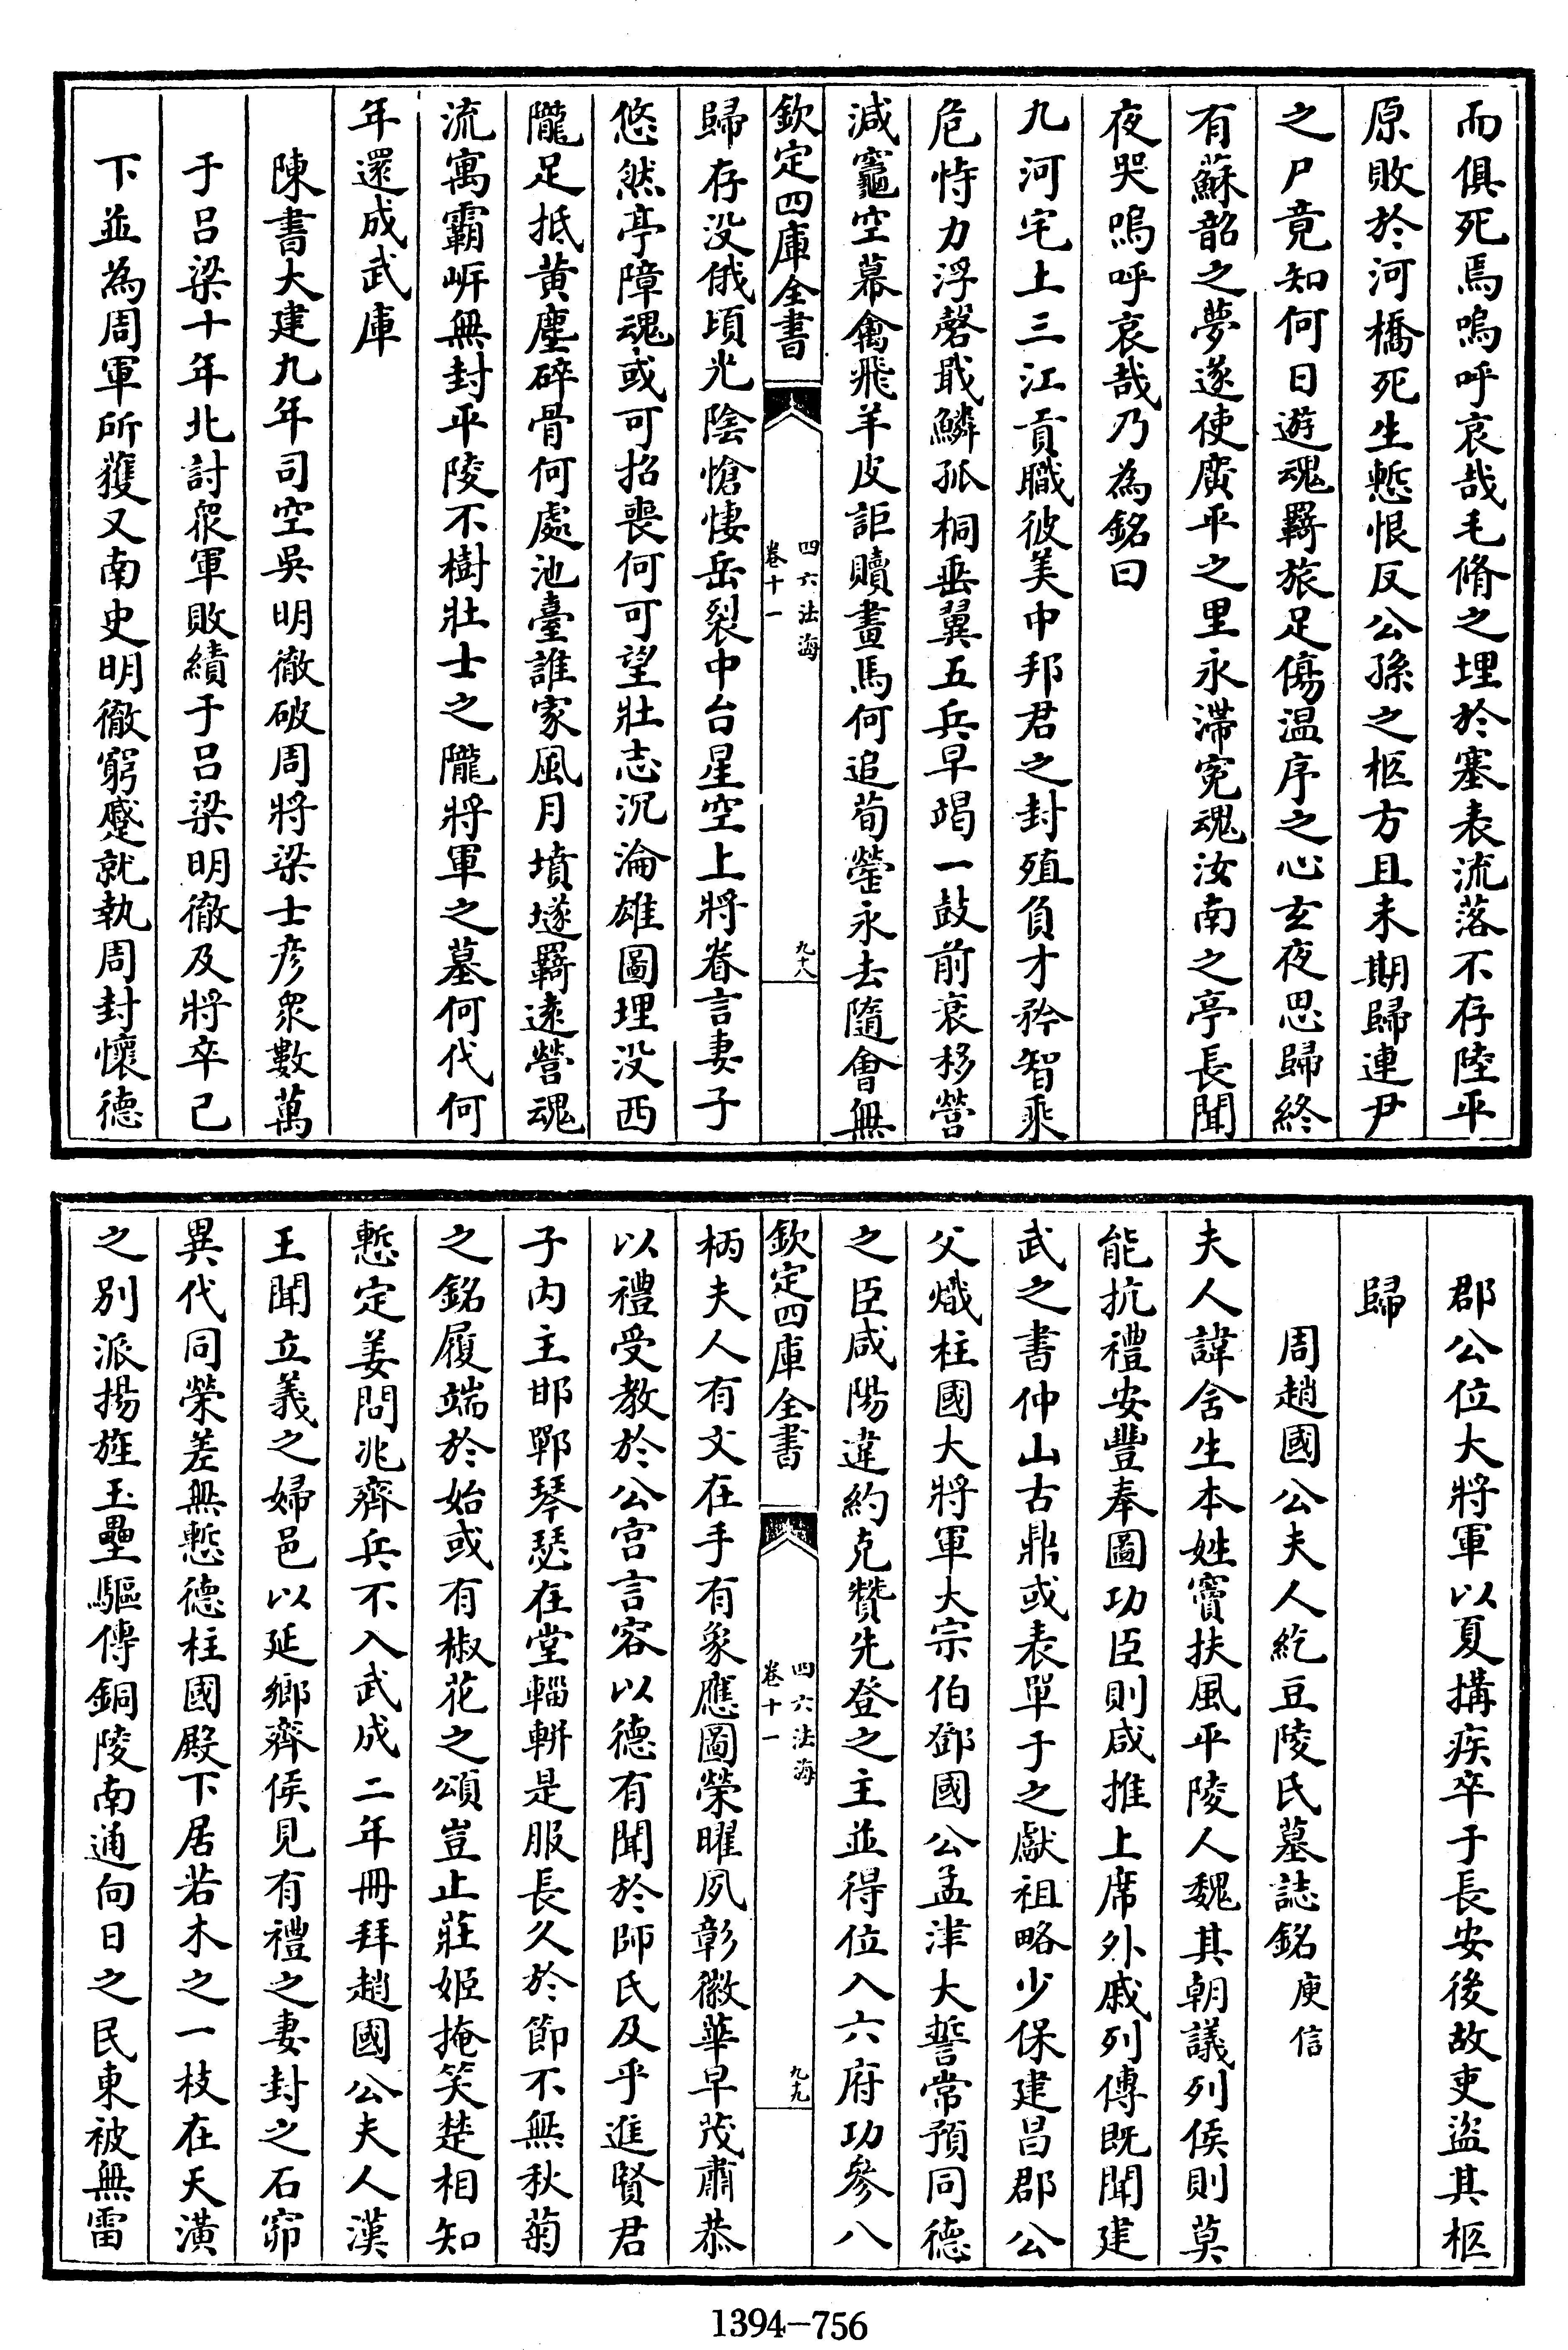 而俱死焉嗚呼哀哉毛脩之埋於塞表流落不存陸平
原敗於河橋死生慙恨反公孫之柩方且未期歸連尹
之尸竟知何日遊魂羇旅足傷温序之心玄夜思歸終
有蘇韶之夢遂使廣平之里永滯寃魂汝南之亭長聞
夜哭嗚呼哀哉乃為銘曰
九河宅土三江貢職彼美中邦君之封殖負才矜智乘
危恃力浮磬戢鱗孤桐垂翼五兵早竭一鼓前衰移營
減竈空幕禽飛羊皮詎贖畫馬何追荀罃永去隨會無
欽定四庫全書
四六法海
卷十一
九十八
歸存没俄頃光陰愴悽岳裂中台星空上將眷言妻子
悠然亭障魂或可招喪何可望壯志沉淪雄圖埋没西
隴足抵黄塵碎骨何處池臺誰家風月墳隧羇遠營魂
流寓霸岸無封平陵不樹壯士之隴將軍之墓何代何
年還成武庫
陳書大建九年司空吳明徹破周將梁士彦衆數萬
于吕梁十年北討衆軍敗績于吕梁明徹及將卒已
下並為周軍所獲又南史明徹窮蹙就執周封懷德
郡公位大將軍以夏搆疾卒于長安後故吏盗其柩
歸
周趙國公夫人紇豆陵氏墓誌銘 庾信
夫人諱含生本姓竇扶風平陵人魏其朝議列侯則莫
能抗禮安豐奉圖功臣則咸推上席外戚列傳既聞建
武之書仲山古鼎或表單于之獻祖略少保建昌郡公
父熾柱國大將軍大宗伯鄧國公孟津大誓常預同德
之臣咸陽違約克贊先登之主並得位入六府功參八
欽定四庫全書
四六法海
卷十一
九十九
柄夫人有文在手有象應圖榮曜夙彰徽華早茂肅恭
以禮受教於公宫言容以德有聞於師氏及乎進賢君
子内主邯鄲琴瑟在堂輜軿是服長久於節不無秋菊
之銘履端於始或有椒花之頌豈止莊姬掩笑楚相知
慙定姜問兆齊兵不入武成二年冊拜趙國公夫人漢
王聞立義之婦邑以延鄉齊侯見有禮之妻封之石窌
異代同榮差無慙德柱國殿下居若木之一枝在天潢
之别派揚旌玉壘驅傳銅陵南通向日之民東被無雷
1394-756